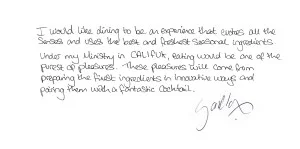 I would like dining to be an experience that evokes all the
senses and uses the best and freshest seasonal ingredients.
Under my Ministry in CALIFUK, eating would be one of the
purest of pleasures. These pleasures will come from
preparing the finest ingredients in innovative ways and
pairing them with a fantastic cocktail.